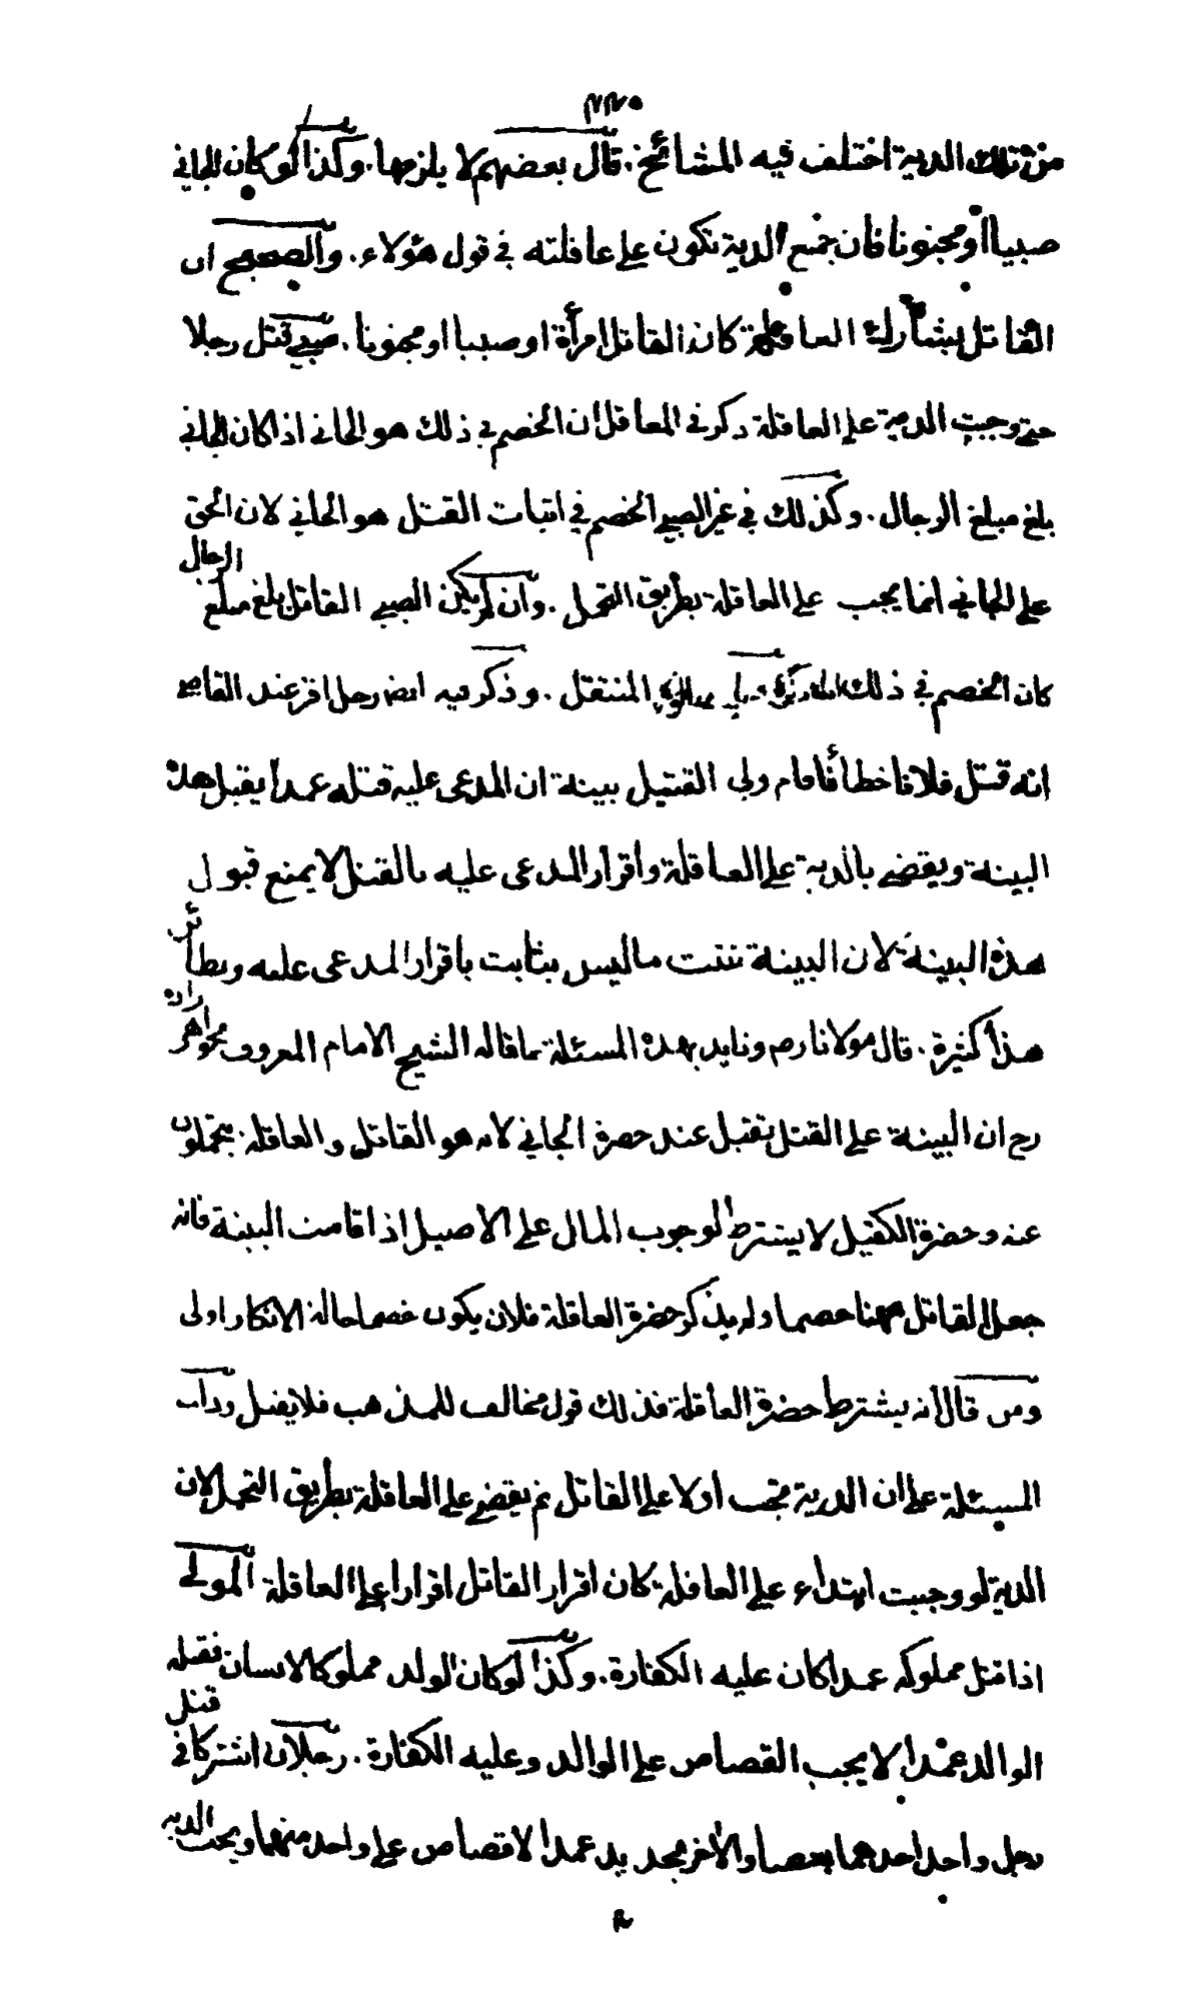 ٢٢٥
من تلك الدية اختلف فيه المشائخ. قال بعضهم لا يلزمها. وكذا لو كان الجاني
صبيا او مجنونا فان جميع الدية تكون على عاقلته في قول هؤلاء. والصحيح ان
القاتل يشارك العاقلة كان القاتل امرأة او صبيا او مجنونا. صبي قتل رجلا
حتى وجبت الدية على العاقلة ذكر في المعاقل ان الخصم في ذلك هو الجاني اذا كان الجاني
بلغ مبلغ الرجال. وكذلك في غير الصبي الخصم في اثبات القتل هو الجاني لان الحق
على الجاني انما يجب على العاقلة بطريق التحمل. وان لم يكن الصبي القاتل بلغ مبلغ الرجال
كان الخصم في ذلك المنتقل. وذكر فيه ايضا رجل اقر عند القاضي
انه قتل فلانا خطأ فاقام ولي القتيل بينة ان المدعى عليه قتله عمدا يقبل هذه
البينة ويقضى بالدية على العاقلة واقرار المدعى عليه بالقتل لا يمنع قبول
هذه البينة لان البينة تثبت ما ليس بثابت باقرار المدعى عليه ونظائر
هذا كثيرة. قال مولانا رح وتايد بهذه المسئلة ما قاله الشيخ الامام المعروف بخواهر زاده
رح ان البينة على القتل تقبل عند حضرة الجاني لانه هو القاتل والعاقلة يتحملون
عنه وحضرة الكفيل لا يشترط لوجوب المال على الاصيل اذا قامت البينة فانه
جعل القاتل ههنا خصما ولم يذكر حضرة العاقلة فلان يكون خصما حالة الانكار اولى
ومن قال انه يشترط حضرة العاقلة فذلك قول مخالف للمذهب فلا يقبل ودلت
المسئلة على ان الدية تجب اولا على القاتل ثم يقضى على العاقلة بطريق التحمل لان
الدية لو وجبت ابتداء على العاقلة كان اقرار القاتل اقرارا على العاقلة المولى
اذا قتل مملوكه عمدا كان عليه الكفارة. وكذا لو كان الولد مملوكا لانسان فقتله
الوالد عمدا لا يجب القصاص على الوالد وعليه الكفارة. رجلان اشتركا في قتل
رجل واحد احدهما بعصا والآخر بحديد عمدا لا قصاص على واحد منهما ويجب الدية